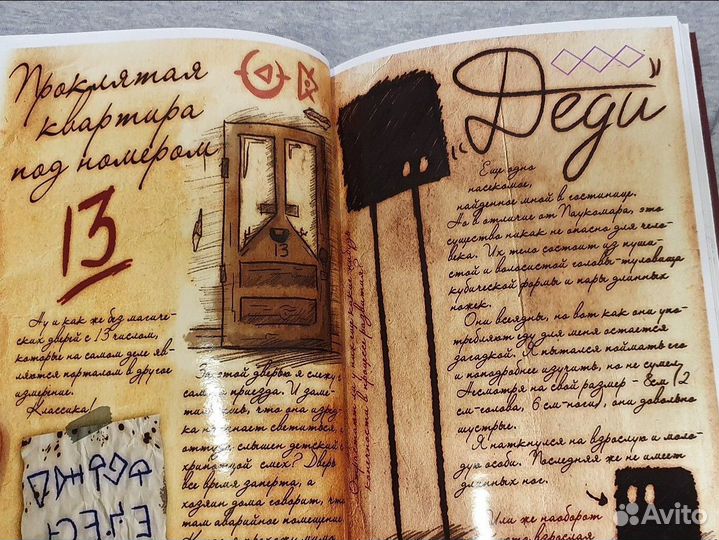 Проклятая
квартира
под номером
13
13
Ну и как же без магичес-
ких дверей с 13 числом,
которые на самом деле яв-
ляются порталом в другое
измерение.
Классика!
За этой дверью я слежу с
самого приезда. И заме-
что она изред-
ка начинает светиться, а
оттуда слышен детский
хрипатцой смех? Дверь
все время заперта, а
хозяин дома говорит, что
там аварийное помещение
"Деди"
Еще одно
насекомое,
найденное мной в гостинице.
Но в отличие от Паукомара, это
существо никак не опасно для чело-
века. Их тело состоит из пуши-
стой и волосистой головы-туловища
кубической формы и пары длинных
ножек.
Они всеядны, но вот как они упо-
требляют еду для меня остается
загадкой. Я пытался поймать его
и поподробнее изучить, но не сумел.
Несмотря на свой размер - 8см (2
см-голова, 6 см-ноги), они довольно
шустрые.
Я наткнулся на взрослую и моло-
дую особи. Последняя же не имеет
длинных ног.
Или же наоборот
это взрослая
Avito